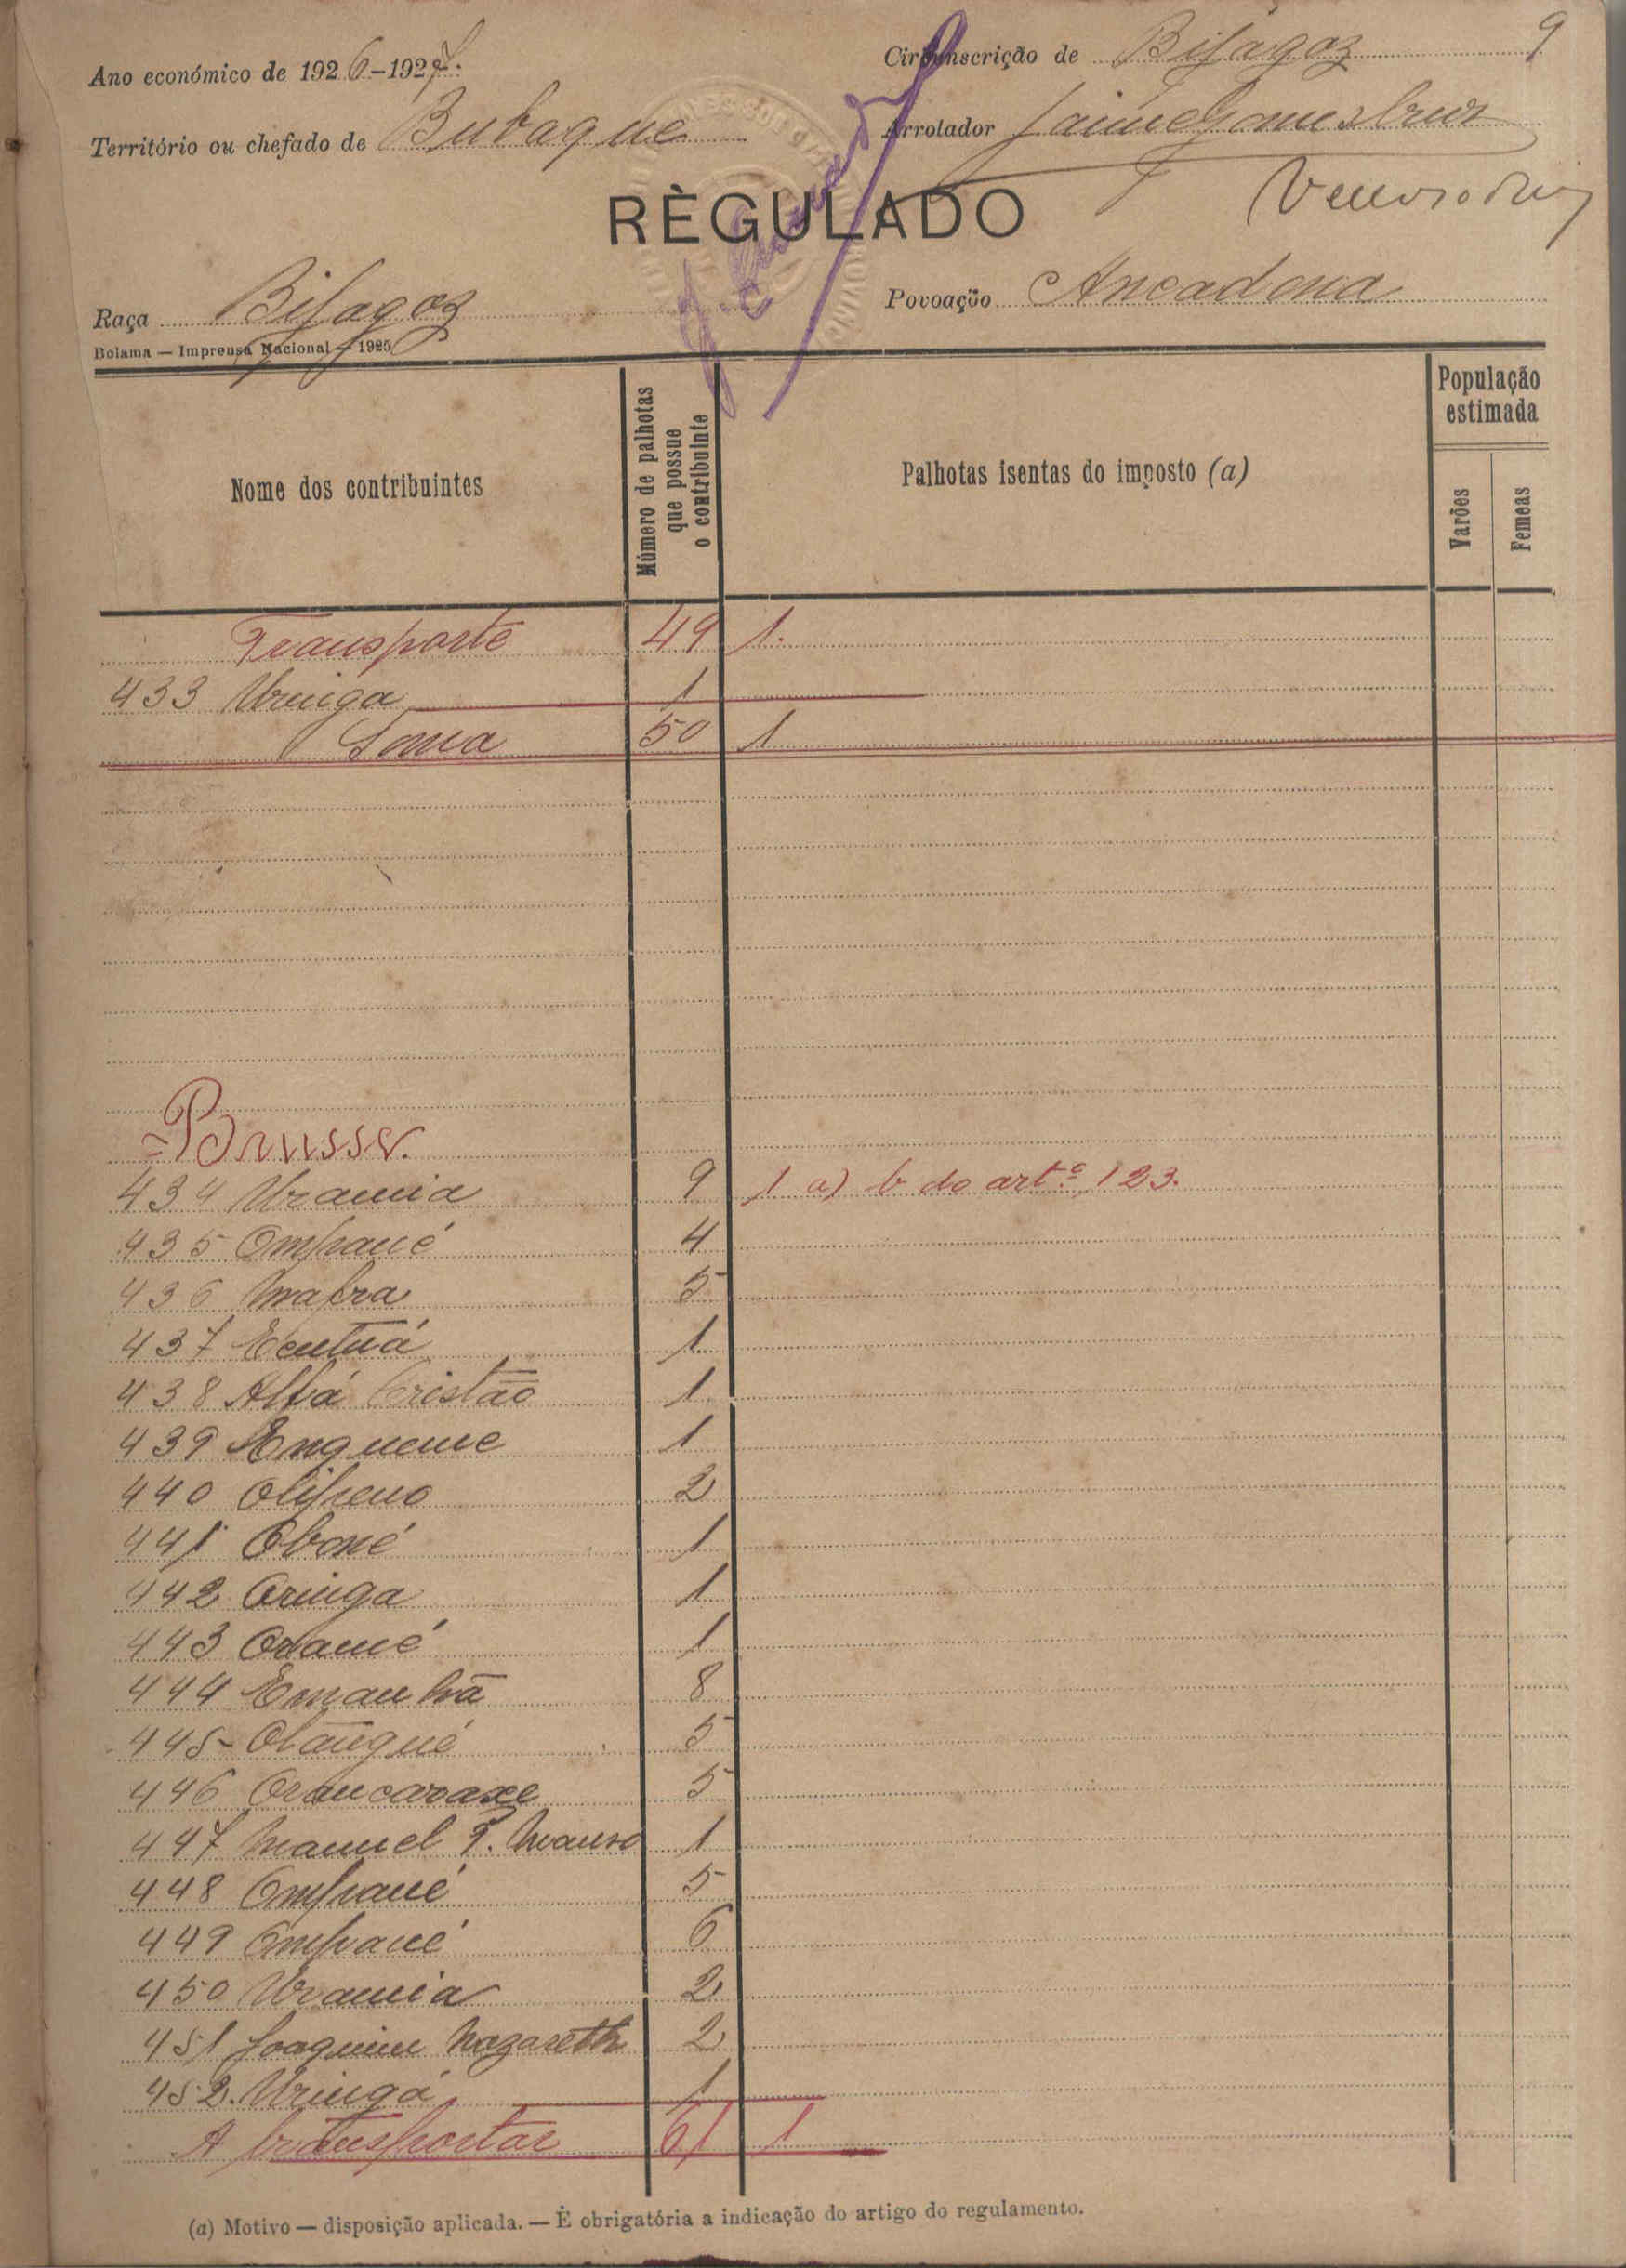 9
Ano económico de 1926-1927.
Circunscrição de Bijagoz
Território ou chefado de Bubaque
Arrolador Jaime Gomes
RÈGULADO
Raça Bijagoz
Povoação Ancadona
Bolama — Imprensa Nacional — 1925
Nome dos contribuintes
Número de palhotas que possue o contribuinte
Palhotas isentas do imposto (a)
População estimada
Varões
Femeas
Transporte 49 1.
433 Uringa 1
Soma 50 1
=Brusse.
434 Uramia 9 1 a) b do artº 123.
435 Ompané 4
436 Mafra 5
437 Ecutuá 1
438 Albá Cristão 1
439 Enqueme 1
440 Olipeno 2
441 Oboné 1
442 Oringa 1
443 Oramé 1
444 8
445 Otangué 5
446 Orancaraxe 5
447 Manuel 1
448 Ompané 5
449 Ompané 6
450 Uramia 2
451 Joaquim Nazareth 2
452. Uringá 1
A transportar 61 1
(a) Motivo — disposição aplicada. — É obrigatória a indicação do artigo do regulamento.